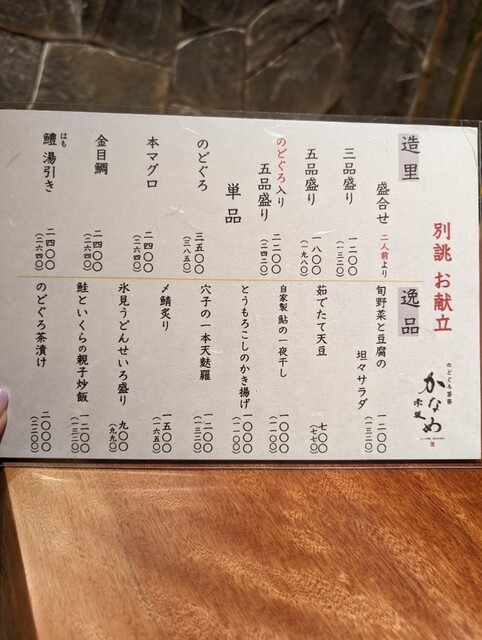 別誂 お献立
造里
盛合せ 二人前より
三品盛り 一二〇〇
(一三二〇)
五品盛り 一八〇〇
(一九八〇)
のどぐろ入り
五品盛り 二二〇〇
(二四二〇)
単品
のどぐろ 三五〇〇
(三八五〇)
本マグロ 二四〇〇
(二六四〇)
金目鯛 二四〇〇
(二六四〇)
はも
鱧 湯引き 二四〇〇
(二六四〇)
逸品
旬野菜と豆腐の
坦々サラダ 一二〇〇
(一三二〇)
茹でたて天豆 七〇〇
(七七〇)
自家製 鮎の一夜干し 一〇〇〇
(一一〇〇)
とうもろこしのかき揚げ 一〇〇〇
(一一〇〇)
穴子の一本天麩羅 一二〇〇
(一三二〇)
〆鯖炙り 一五〇〇
(一六五〇)
氷見うどんせいろ盛り 九〇〇
(九九〇)
鮭といくらの親子炒飯 一二〇〇
(一三二〇)
のどぐろ茶漬け 二〇〇〇
(二二〇〇)
のどぐろ茶寮
かなめ
赤坂